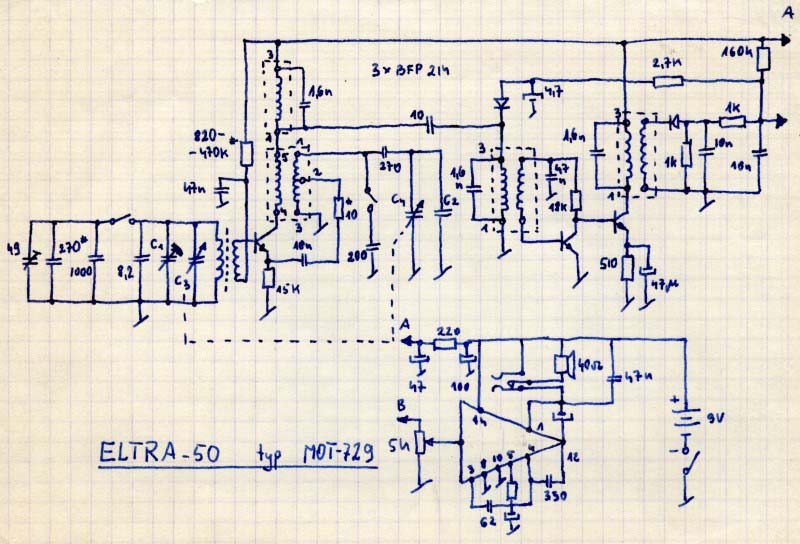 A
3
3 × BFP 214
2,7K
160k
1,6n
4,7
10
820-*
-470K
2
3
1,6n
1k
5
1
270
3
47
n
1k
10n
10n
47n
2
*
10
C4
C2
1,6
n
18K
4
3
1
1
10n
49
270*
1000
8,2
C1
C3
15K
200
510
47µ
A
220
47
100
40Ω
47n
+
9V
-
B
5k
14
1
12
3
8
10
5
4
330
62
ELTRA-50 typ MOT-729